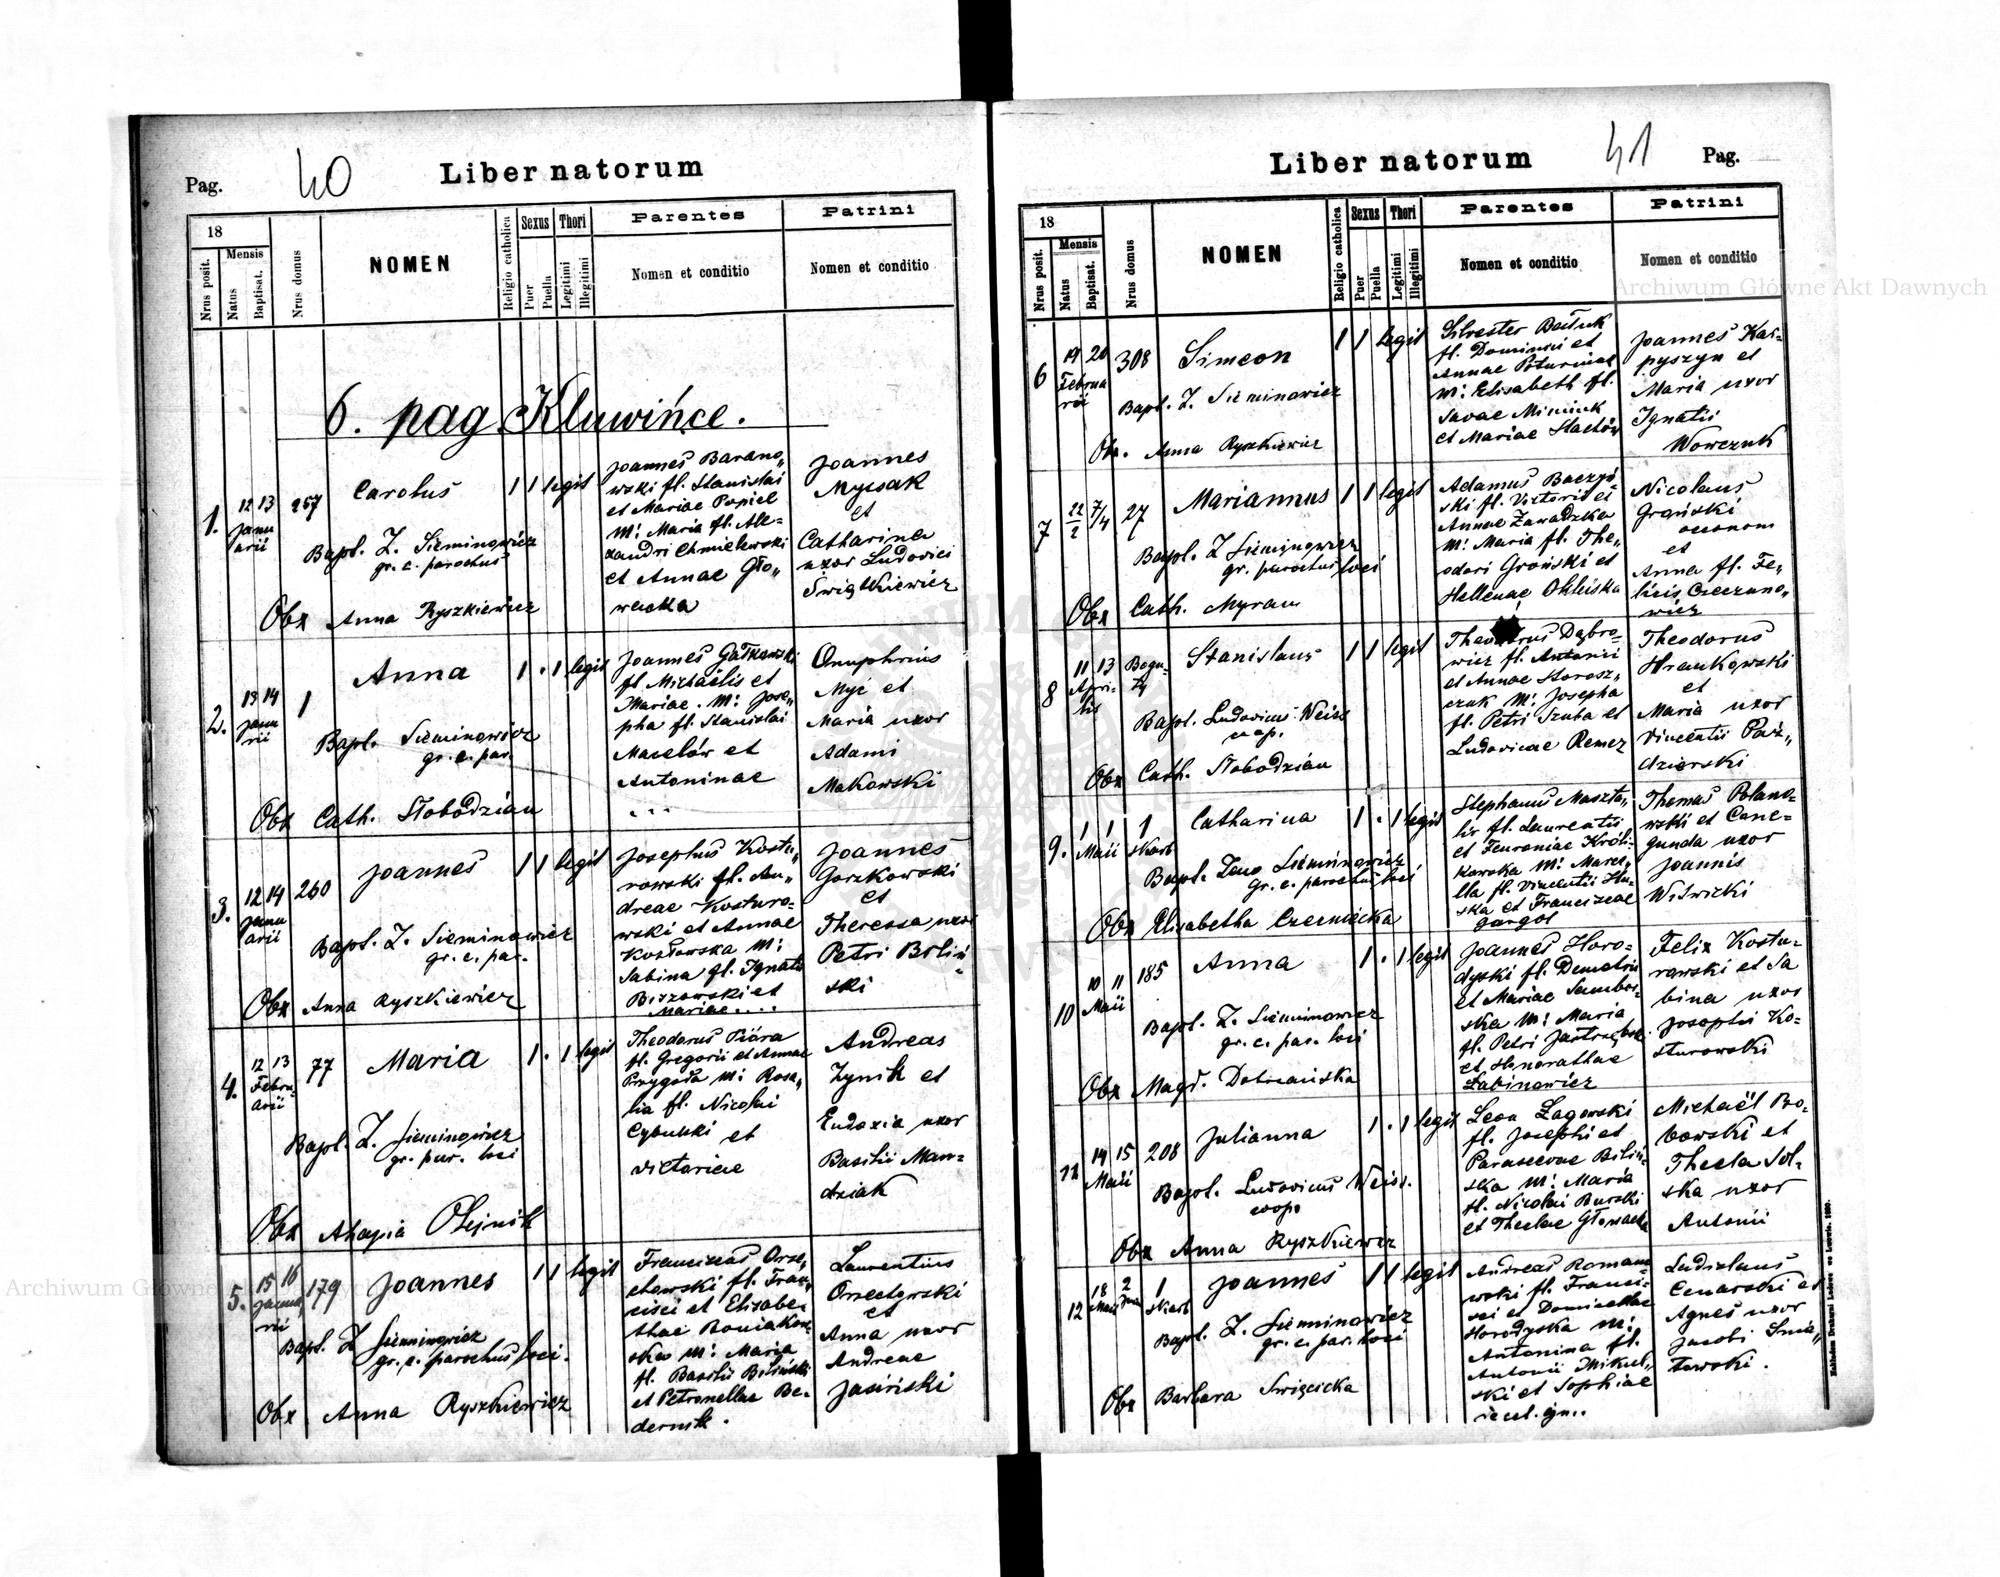 Pag. 40 Liber natorum
18
Nrus posit.
Mensis
Natus
Baptisat.
Nrus domus
NOMEN
Religio catholica
Sexus
Puer
Puella
Thori
Legitimi
Illegitimi
Parentes
Nomen et conditio
Patrini
Nomen et conditio
6. pag. Kluwińce.
1.
12 13
Janu
arii
257
Carolus
Bapt. Z. Sieminowicz
gr. c. parochus
Obx Anna Ryszkiewicz
1 1 legit
Joannes Barano„
wski fl. Stanislai
et Mariae Popiel
M: Maria fl. Ale-
xandri Chmielewski
et Annae Gło„
wacka
Joannes
Mycsak
et
Catharina
uxor Ludovici
Świątkiewicz
2.
13 14
Janu
arii
1
Anna
Bapt. Sieminowicz
gr. c. par.
Obx Cath. Słobodzian
1 . 1 legit
Joannes Gałkowski
fl. Michaelis et
Mariae. M: Jose„
pha fl. Stanislai
Macelów et
Antoninae
...
Onuphrius
Myć et
Maria uxor
Adami
Makowski
3.
12 14
Janu
arii
260
Joannes
Bapt. Z. Sieminowicz
gr. c. par.
Obx Anna Ryszkiewicz
1 1 legit
Josephus Kostu„
rowski fl. An„
dreae Kosturo-
wski et Annae
Kozłowska M:
Sabina fl. Ignatii
et
Mariae....
Joannes
Gorzkowski
et
Theressa uxor
Petri Bilin
ski
4.
12 13
Febru-
arii
77
Maria
Bapt. Z. Sieminowicz
gr. par. loci
Obx Ahapia Olejnik
1 . 1 legit
Theodorus Pióra
fl. Gregorii et Annae
Przygoda M: Rosa„
lia fl. Nicolai
Cybulski et
Victoriae
Andreas
Zynik et
Eudoxia uxor
Basilii Man-
dziak
5.
15 16
Janua
rii
179
Joannes
Bapt. Z Sieminowicz
gr. c. parochus loci.
Obx Anna Ryszkiewicz
1 1 legit
Franciscus Orze„
chowski fl. Fran„
cisci et Elisabe-
thae Boniakow
ska M: Maria
fl. Basilii Biliński
et Petronellae Be-
dernik.
Laurentius
Orzechowski
et
Anna uxor
Andreae
Jasiński
Liber natorum 41 Pag.
18
Nrus posit.
Mensis
Natus
Baptisat.
Nrus domus
NOMEN
Religio catholica
Sexus
Puer
Puella
Thori
Legitimi
Illegitimi
Parentes
Nomen et conditio
Patrini
Nomen et conditio
6
19 20
Februa
rii
308
Simeon
Bapt. Z. Sieminowicz
Obx. Anna Ryszkiewicz
1 1 legit
Silvester Bałuk
fl. Dominici et
Annae
M: Elisabeth fl.
Savae Miniuk
et Mariae
Joannes Kar-
pyszyn et
Maria uxor
Ignatii
Wowczuk
7
22/2 7/4
27
Mariannus
Bapt. Z Sieminowicz
gr. parochus loci
Obx Cath. Myram
1 1 legit
Adamus Baczyń
ski fl. Victoris et
Annae Zawadzka
M: Maria fl. The„
odori Groński et
Hellenae
Nicolaus
Groński
oeconom
et
Anna fl. Fe„
licis
wicz
8
11 13
Apri-
lis
Bogu-
ty
Stanislaus
Bapt. Ludovicus Weiss
coop.
Obx Cath. Słobodzian
1 1 legit
Theodorus Dąbro-
wicz fl. Antonii
et Annae Storosz„
czuk M: Josepha
fl. Petri Szuba et
Ludovicae Remez
Theodorus
Hrankowski
et
Maria uxor
Vincentii Paź„
dzierski
9.
1 1
Maii
1
skarb
Catharina
Bapt. Zeno Sieminowicz
gr. c. parochus loci
Obx Elisabetha Czernicka
1 . 1 legit
Stephanus Maszta„
lir fl. Laurentii
et Feuroniae Króli-
kowska M: Marce„
lla fl. Vincentii Hu-
ska et Franciscae
Gargol
Thomas Polano-
wski et Cune-
gunda uxor
Joannis
Witwicki
10
10 11
Maii
185
Anna
Bapt. Z. Sieminowicz
gr. c. par. loci
Obx Magd. Dobrzańska
1 . 1 legit
Joannes Horo-
dyski fl. Demetrii
et Mariae Sambor„
ska M: Maria
fl. Petri
et Honorathae
Łabinowicz
Felix Kostu-
rowski et Sa
bina uxor
Josephi Ko-
sturowski
11
14 15
Maii
208
Julianna
Bapt. Ludovicus Weiss.
coop.
Obx Anna Ryszkiewicz
1 . 1 legit
Leon Łagowski
fl. Josephi et
Parascevae Biliń-
ska M: Maria
fl. Nicolai Burski
et Theclae Głowacka
Michaël Bo-
bowski et
Thecla Sol-
ska uxor
Antonii
12
18 2
Maii Juni
1
skarb
Joannes
Bapt. Z. Sieminowicz
gr. c. par. loci
Obx Barbara Święcicka
1 1 legit
Andreas Roman-
wski fl. Franci-
sci et Dominicae
Horodyska M:
Antonina fl.
Antonii Mikul„
ski et Sophiae
Ladislaus
Cenarski et
Agnes uxor
Jacobi Smia„
towski.
Nakładem Drukarni Ludowej we Lwowie. 1890.
Archiwum Główne Akt Dawnych
Archiwum Główne Akt Dawnych